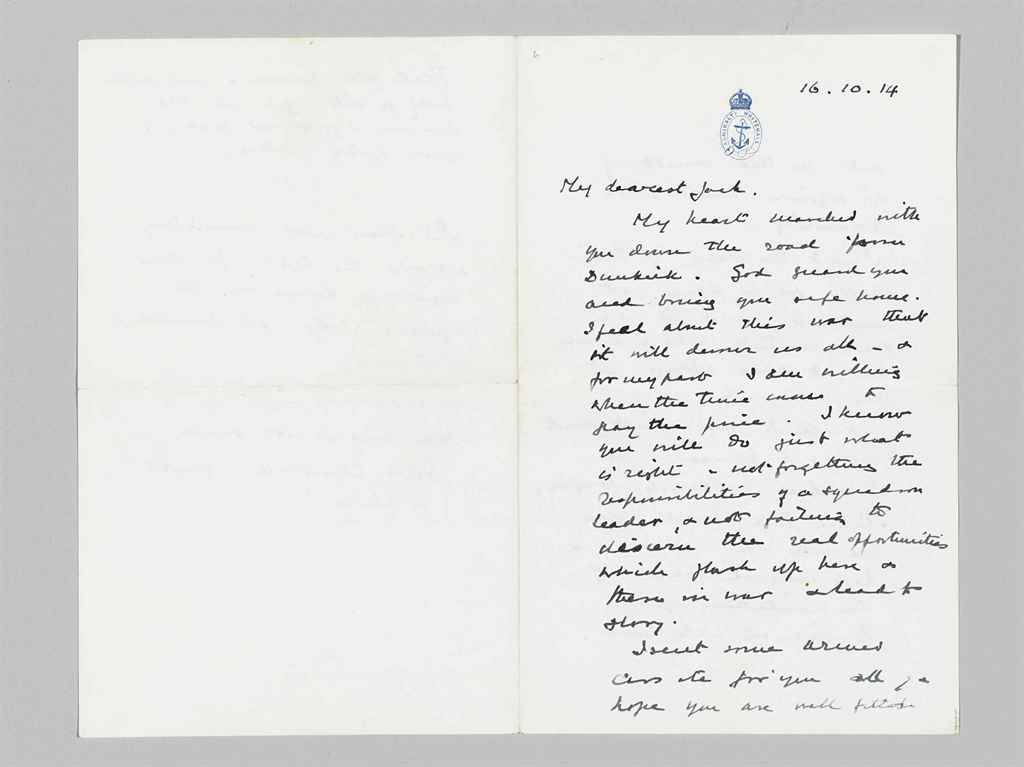 16.10.14
ADMIRALTY WHITEHALL
My dearest Jack.
My heart marched with
you down the road from
Dunkirk. God guard you
and bring you safe home.
I feel about this war that
it will devour us all - &
for my part I am willing
when the time comes to
pay the price. I know
you will do just what
is right - not forgetting the
responsibilities of a squadron
leader, & not failing to
discern the real opportunities
which flash up here &
there in war & lead to
glory.
I sent some armed
cars etc for you all &
hope you are well